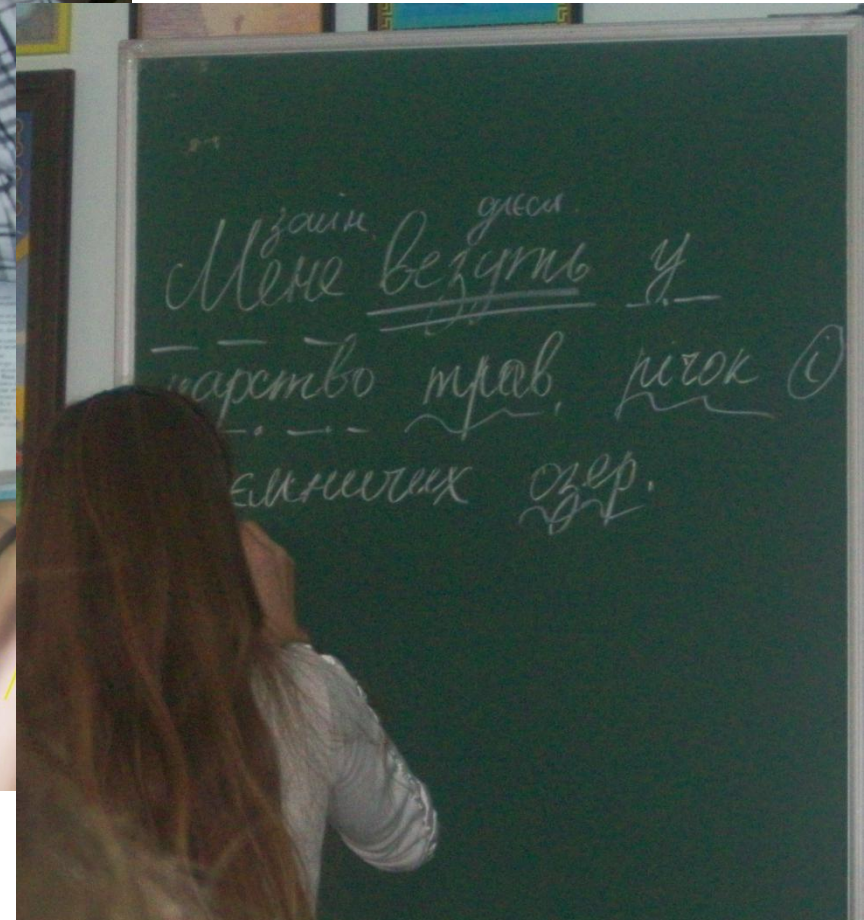 займ. дієсл.
Мене везуть у
царство трав, річок і
ємничих озер.